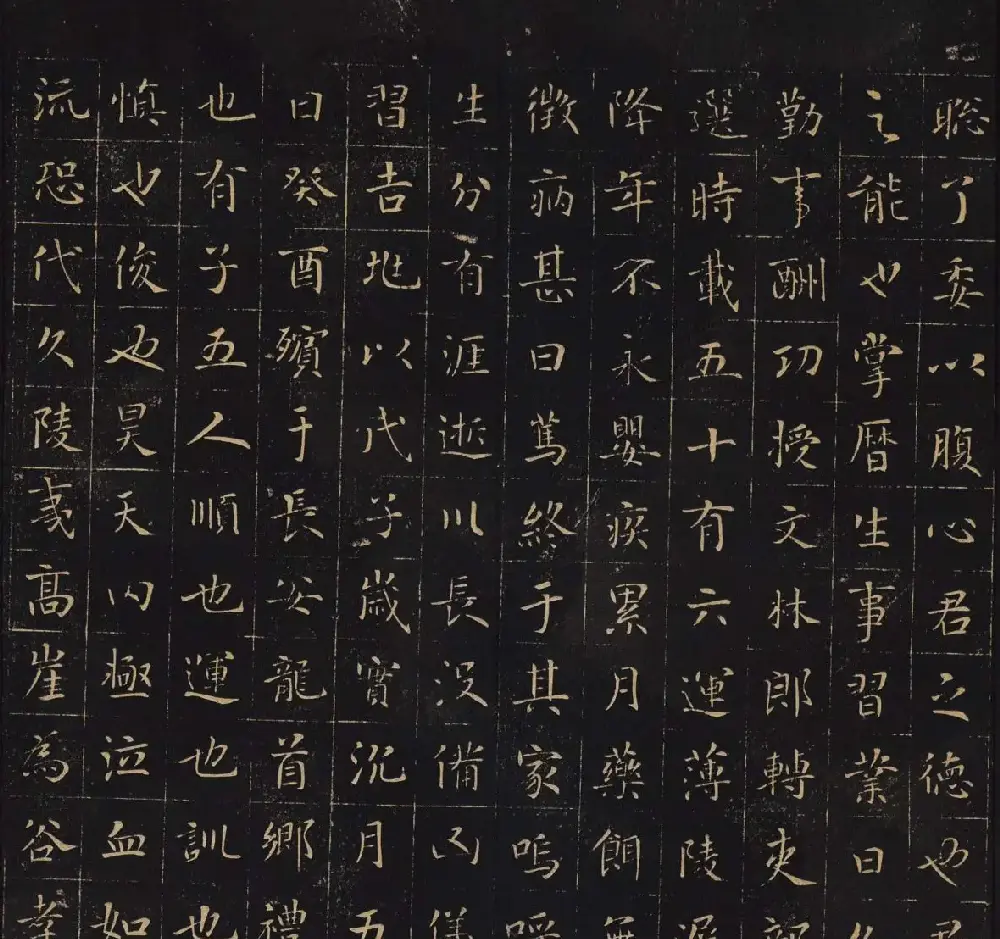 聡了委以腹心君之德也君
之能也掌曆生事習業日久
勤事酬功授文林郎轉吏部
選時載五十有六運薄陵
降年不永嬰疾累月藥餌無
徵病甚日篤終于其家嗚呼
生分有涯逝川長沒備凶儀
習吉地以戊子歲實沉月五
日癸酉殯于長安龍首鄉禮
也有子五人順也運也訓也
慎也俊也昊天罔極泣血如
流恐代久陵夷高崖為谷孝